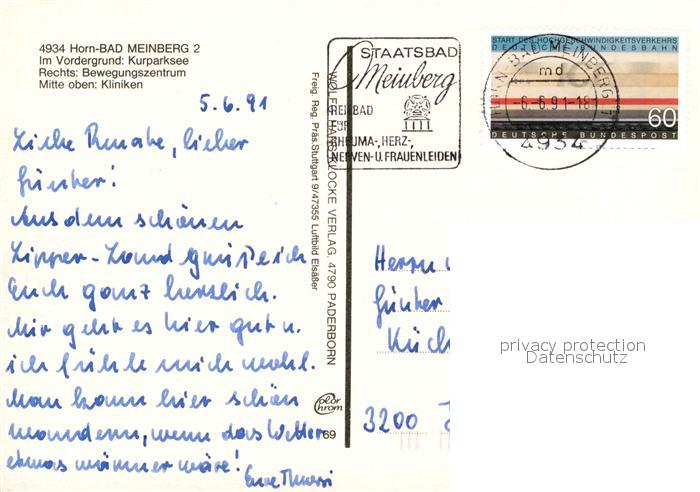 4934 Horn-BAD MEINBERG 2
Im Vordergrund: Kurparksee
Rechts: Bewegungszentrum
Mitte oben: Kliniken
5.6.91
Liebe Renate, lieber
Günter!
Aus dem schönen
Lipper-Land grüße ich
Euch ganz herzlich.
Mir geht es hier gut u.
ich fühle mich wohl.
Man kann hier schön
wandern, wenn das Wetter
etwas wärmer wäre!
Eure
Freig. Reg. Präs. Stuttgart 9/47355 Luftbild Elsäßer
WOLFG. HANS KLOCKE VERLAG, 4790 PADERBORN
color chrom
69
STAATSBAD
Meinberg
HEILBAD
FÜR
RHEUMA-, HERZ-,
NERVEN- U. FRAUENLEIDEN
HORN-BAD MEINBERG 1
md
-6.-6.91-18
4934
START DES HOCHGESCHWINDIGKEITSVERKEHRS
DEUTSCHE BUNDESBAHN
60
DEUTSCHE BUNDESPOST
Herrn
Günter
Küch
3200
privacy protection
Datenschutz